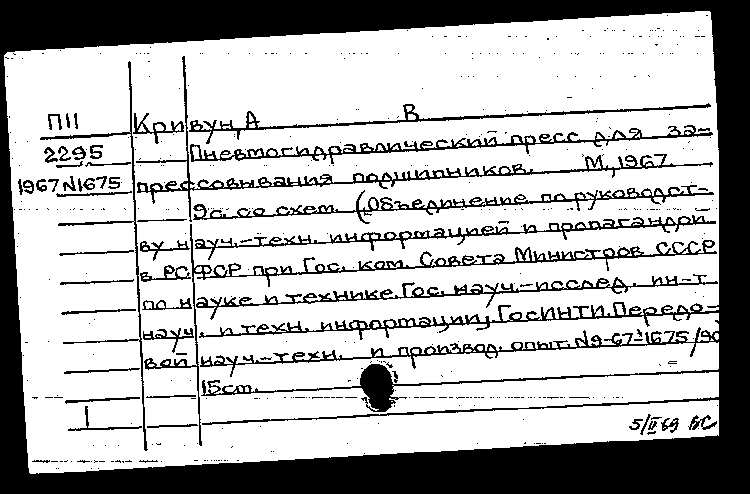 П11 Кривун, А В
2295 Пневмогидравлический пресс для за-
1967 N1675 прессовывания подшипников. М., 1967.
9с. со схем. (Объединение по руководст-
ву науч.-техн. информацией и пропагандой
в РСФСР при Гос. ком. Совета Министров СССР
по науке и технике. Гос. науч.-исслед. ин-т
науч. и техн. информации, ГосИНТИ. Передо-
вой науч.-техн. и производ. опыт. N9-67-1675/90
15см.
1
5/II 69 ВС